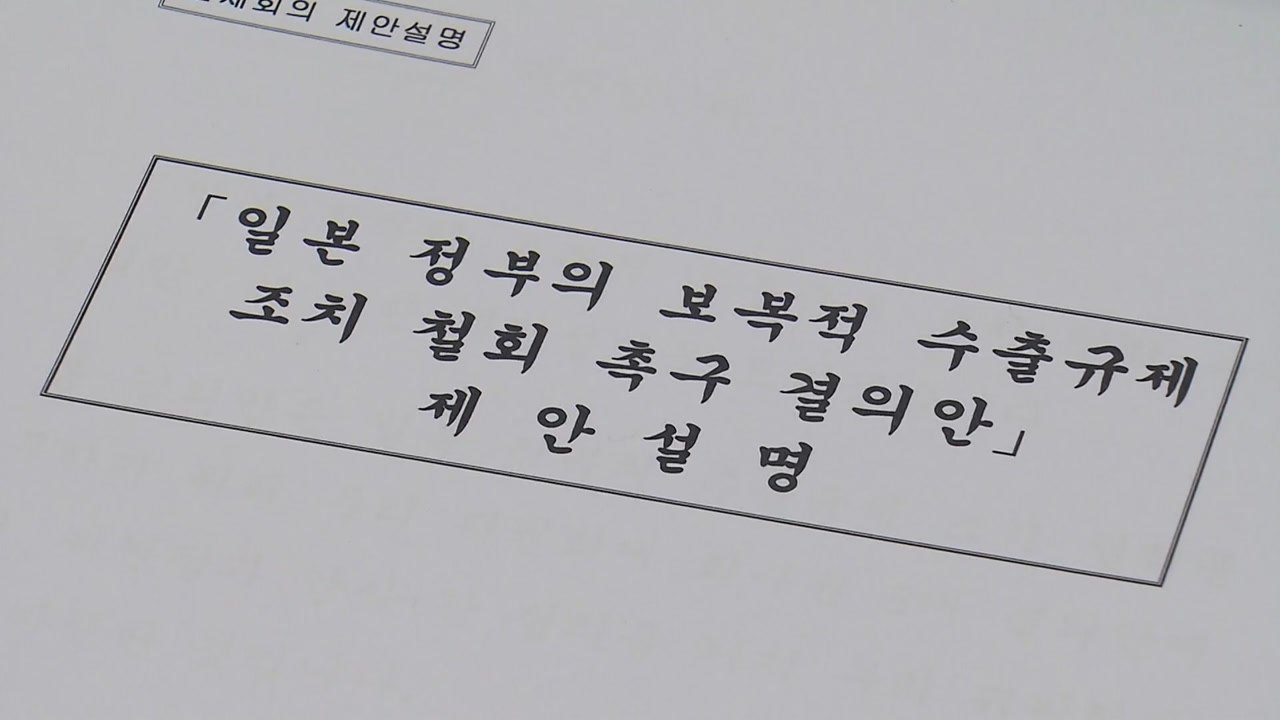 제안설명
「일본 정부의 보복적 수출규제
조치 철회 촉구 결의안」
제 안 설 명